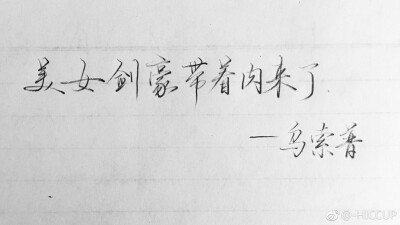 美女剑豪带着肉来了
—乌索普
@-HICCUP